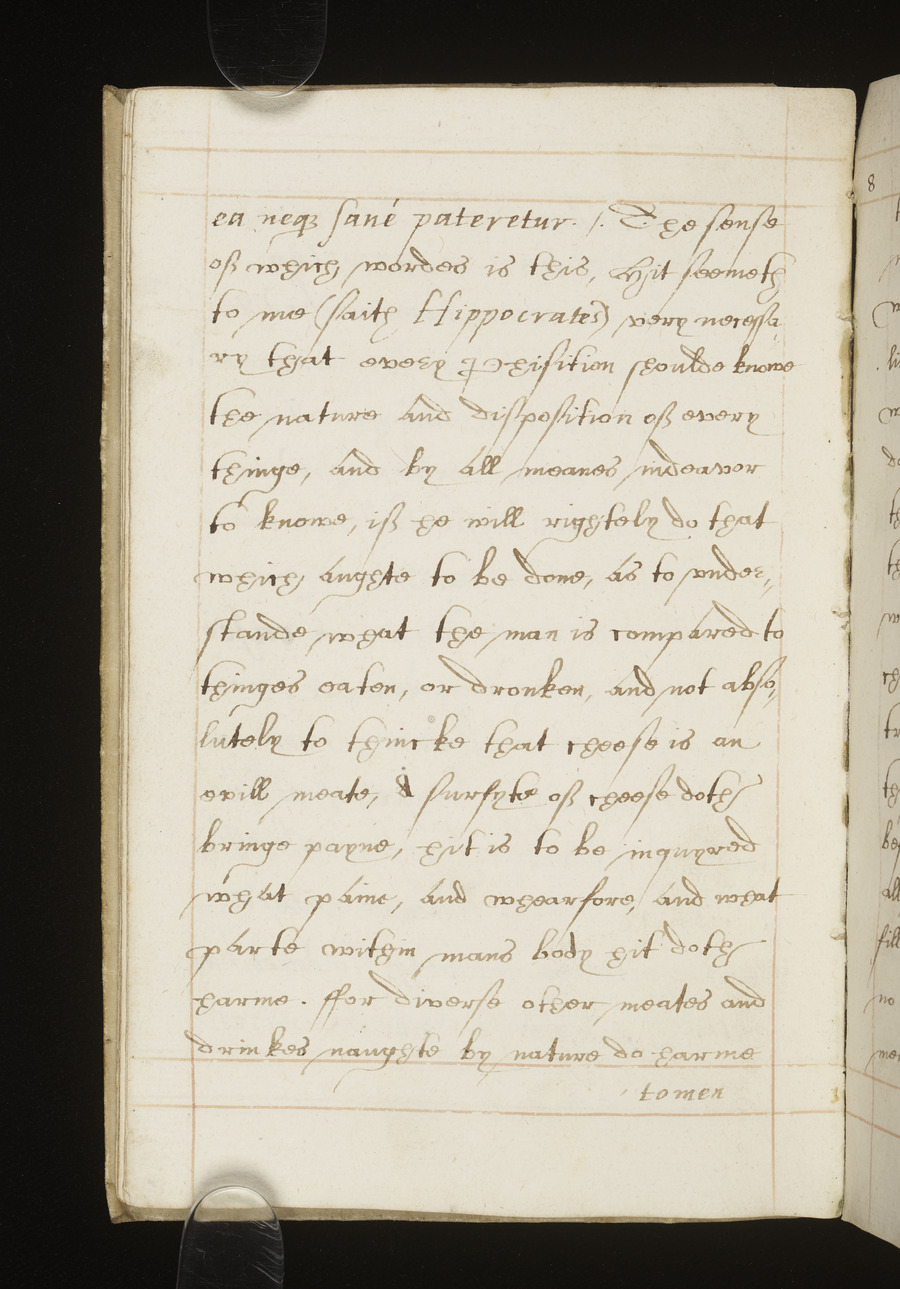 ea neqꝫ sané pateretur. /. The sense
off which wordes is this, Hit seemeth
to me (saith Hippocrates) very necessa
ry that every Phisition shoulde knowe
the nature and disposition off every
thinge, and by all meanes indeavor
to knowe, iff he will rightely do that
which aughte to be done, as to vnder,,
stande what the man is compared to
thinges eaten, or dronken, and not abso,,
lutely to thincke that cheese is an
evill meate, a surfyte off cheese doth
bringe payne, hit is to be inquyred
what paine, and whearfore, and what
parte within mans body hit doth
harme. ffor diverse other meates and
drinkes naughte by nature do harme
to men
8